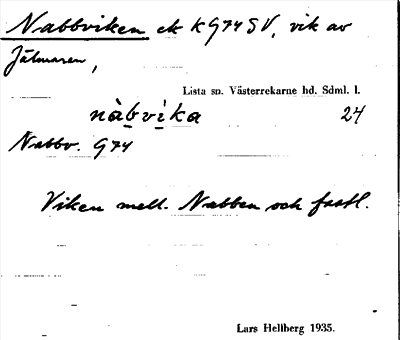 Nabbviken ek K G74 SV, vik av
Jälmaren,
Lista sn. Västerrekarne hd. Sdml. l.
nàbvìka 24
Nabbv. G74
Viken mell. Nabben och fastl.
Lars Hellberg 1935.